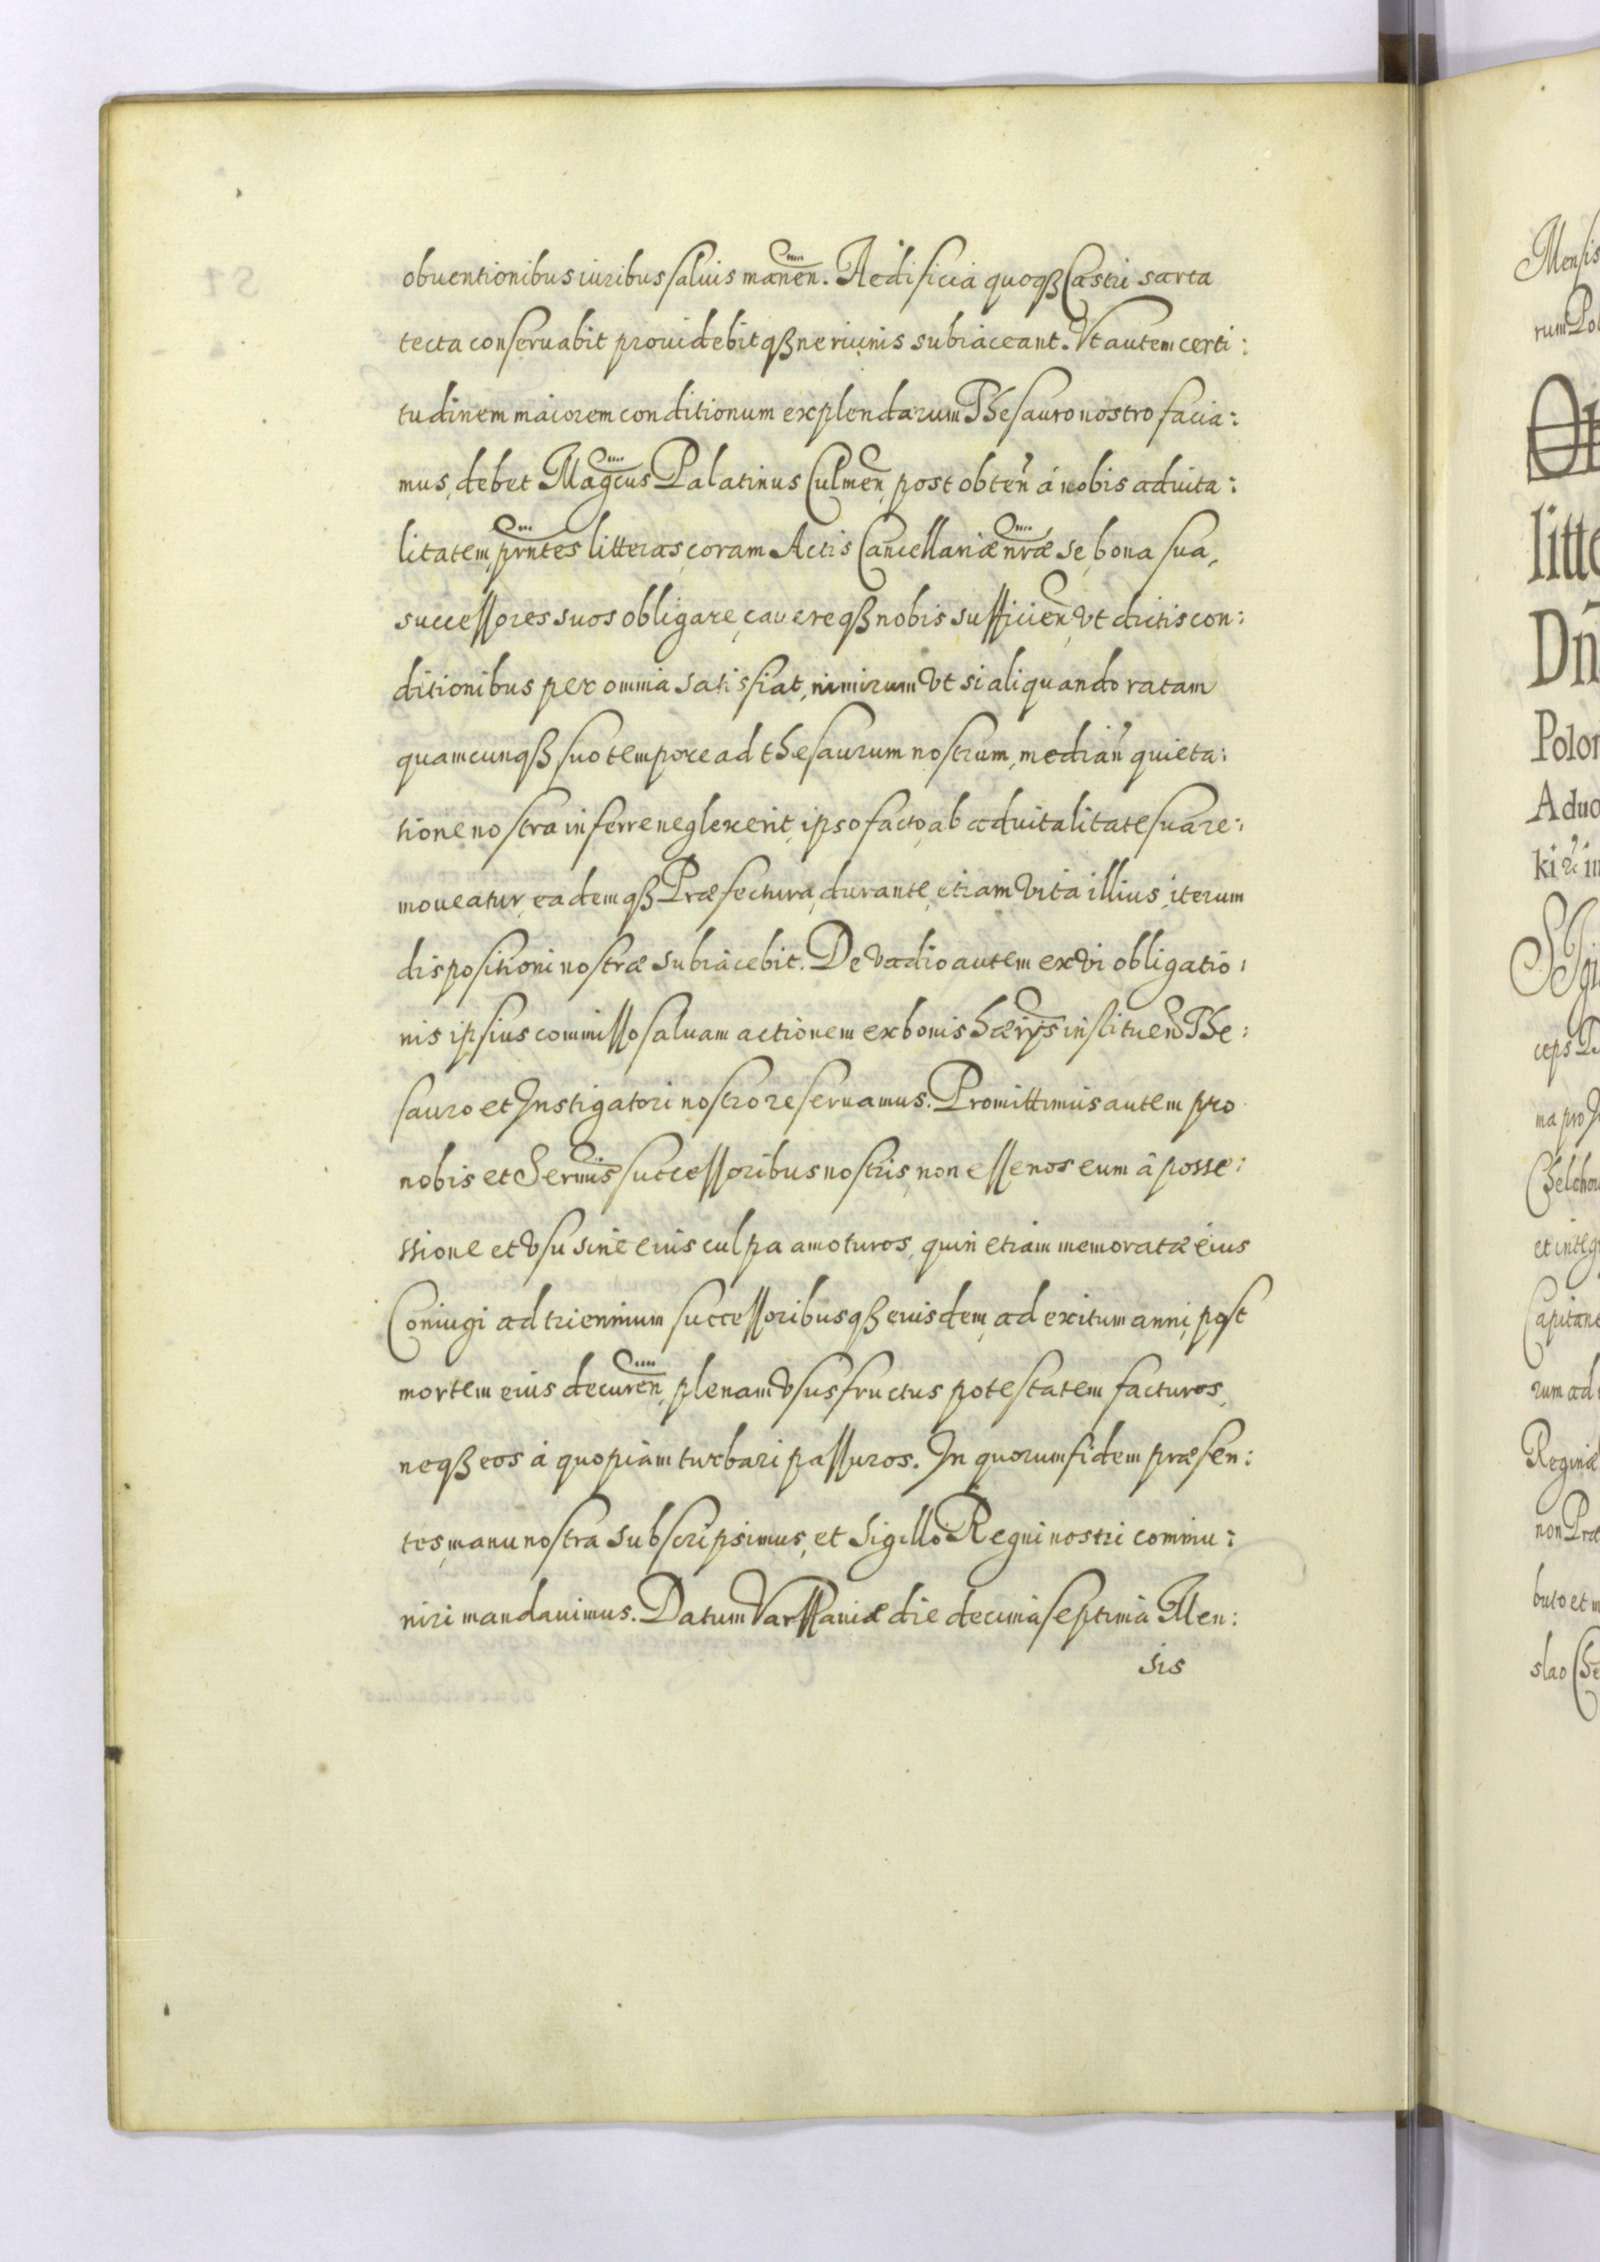 obuentionibus iuribus saluis manen. Aedificia quoqß Castri sarta
tecta conseruabit prouidebitqß ne riunis subiaceant. Vt autem certi:
tudinem maiorem conditionum explendarum Thesauro nostro facia:
mus, debet Magcus Palatinus Culmen, post obten à nobis aduita:
litatem, prntes litteras, coram Actis Cancellariæ nræ se, bona sua,
successores suos obligare, cauereqß nobis sufficien, vt dictis con:
ditionibus per omnia satisfiat, nimirum vt si aliquando ratam
quamcunqß suo tempore ad thesaurum nostrum, median quieta:
tione nostra inferre neglexerit, ipso facto, ab aduitalitate sua re:
moueatur, eademqß Præfectura, durante, etiam vita illius, iterum
dispositioni nostræ subiacebit. De vadio autem ex vi obligatio:
nis ipsius commisso saluam actionem ex bonis hærijs instituen The:
sauro et Instigatori nostro reseruamus. Promittimus autem pro
nobis et Sermis successoribus nostris, non esse nos eum à posse:
ssione et vsu sine eius culpa amoturos, quin etiam memoratæ eius
Coniugi ad triennium successoribusqß euisdem, ad exitum anni, post
mortem eius decuren, plenam vsusfructus potestatem facturos,
neqß eos à quopiam turbari passuros. In quorum fidem præsen:
tes, manu nostra subscripsimus, et Sigillo Regni nostri commu:
niri mandauimus. Datum Varssauiæ die decima septima Men:
sis
Mensis
litte
Dn
Polon
Aduo
ki
ceps
ma pro
et integ
Capitane
rum ad
Reginæ
non Præ
buto et
slao